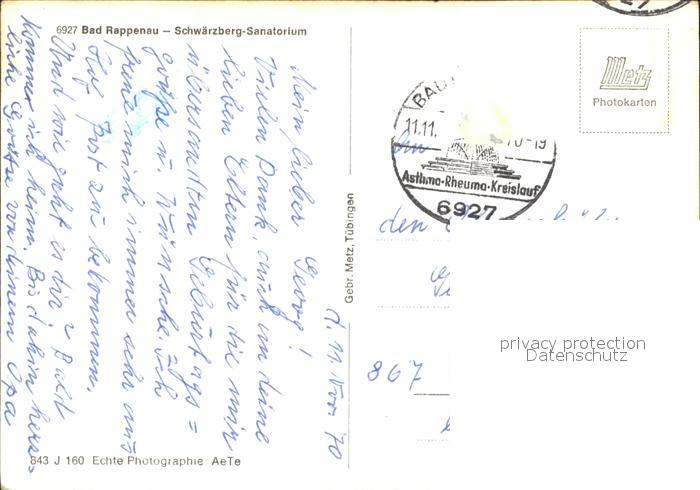 6927 Bad Rappenau — Schwärzberg-Sanatorium
d. 11. Nov. 70
Mein lieber Georg!
Vielen Dank, auch an deine
lieben Eltern für die mir
übersandten Geburtags=
grüße u. Wünsche. Ich
freue mich immer sehr aus
Hof Post zu bekommen.
Und wie geht es dir? Bald
komme ich heim. Bis dahin herz=
liche Grüße von deinem Opa
843 J 160 Echte Photographie AeTe
Gebr. Metz, Tübingen
Metz
Photokarten
BAD
11.11.
70-19
Asthma·Rheuma·Kreislauf
6927
27
den
867
privacy protection
Datenschutz